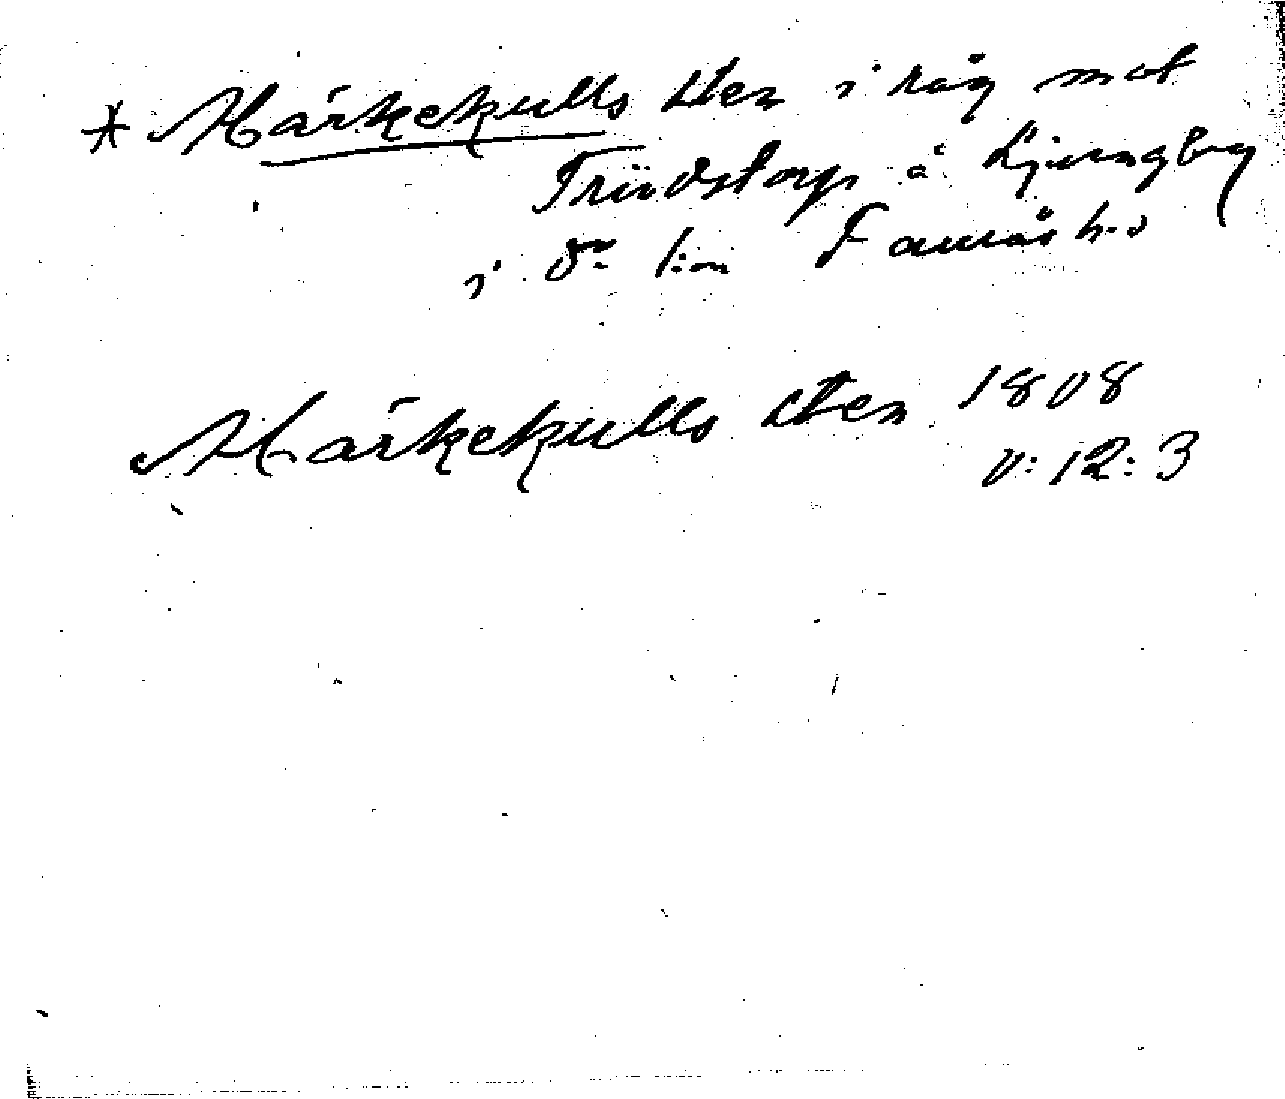 * Märkekulls sten i råg mot
Trindstorp å Ljungby
i d:n l:n Faurås h:d
Märkekulls sten 1808
v: 12: 3